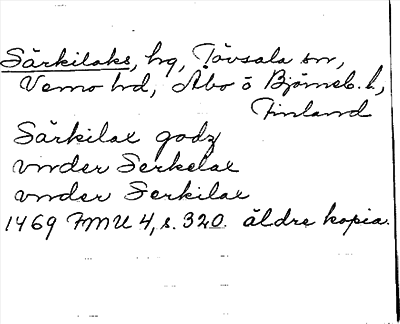 Särkilaks, hg, Tövsala sn,
Vemo hd, Åbo o Björneb. l,
Finland
Särkilax godz
vnder Serkelax
vnder Serkilax
1469 FMU 4, s. 320. äldre kopia.